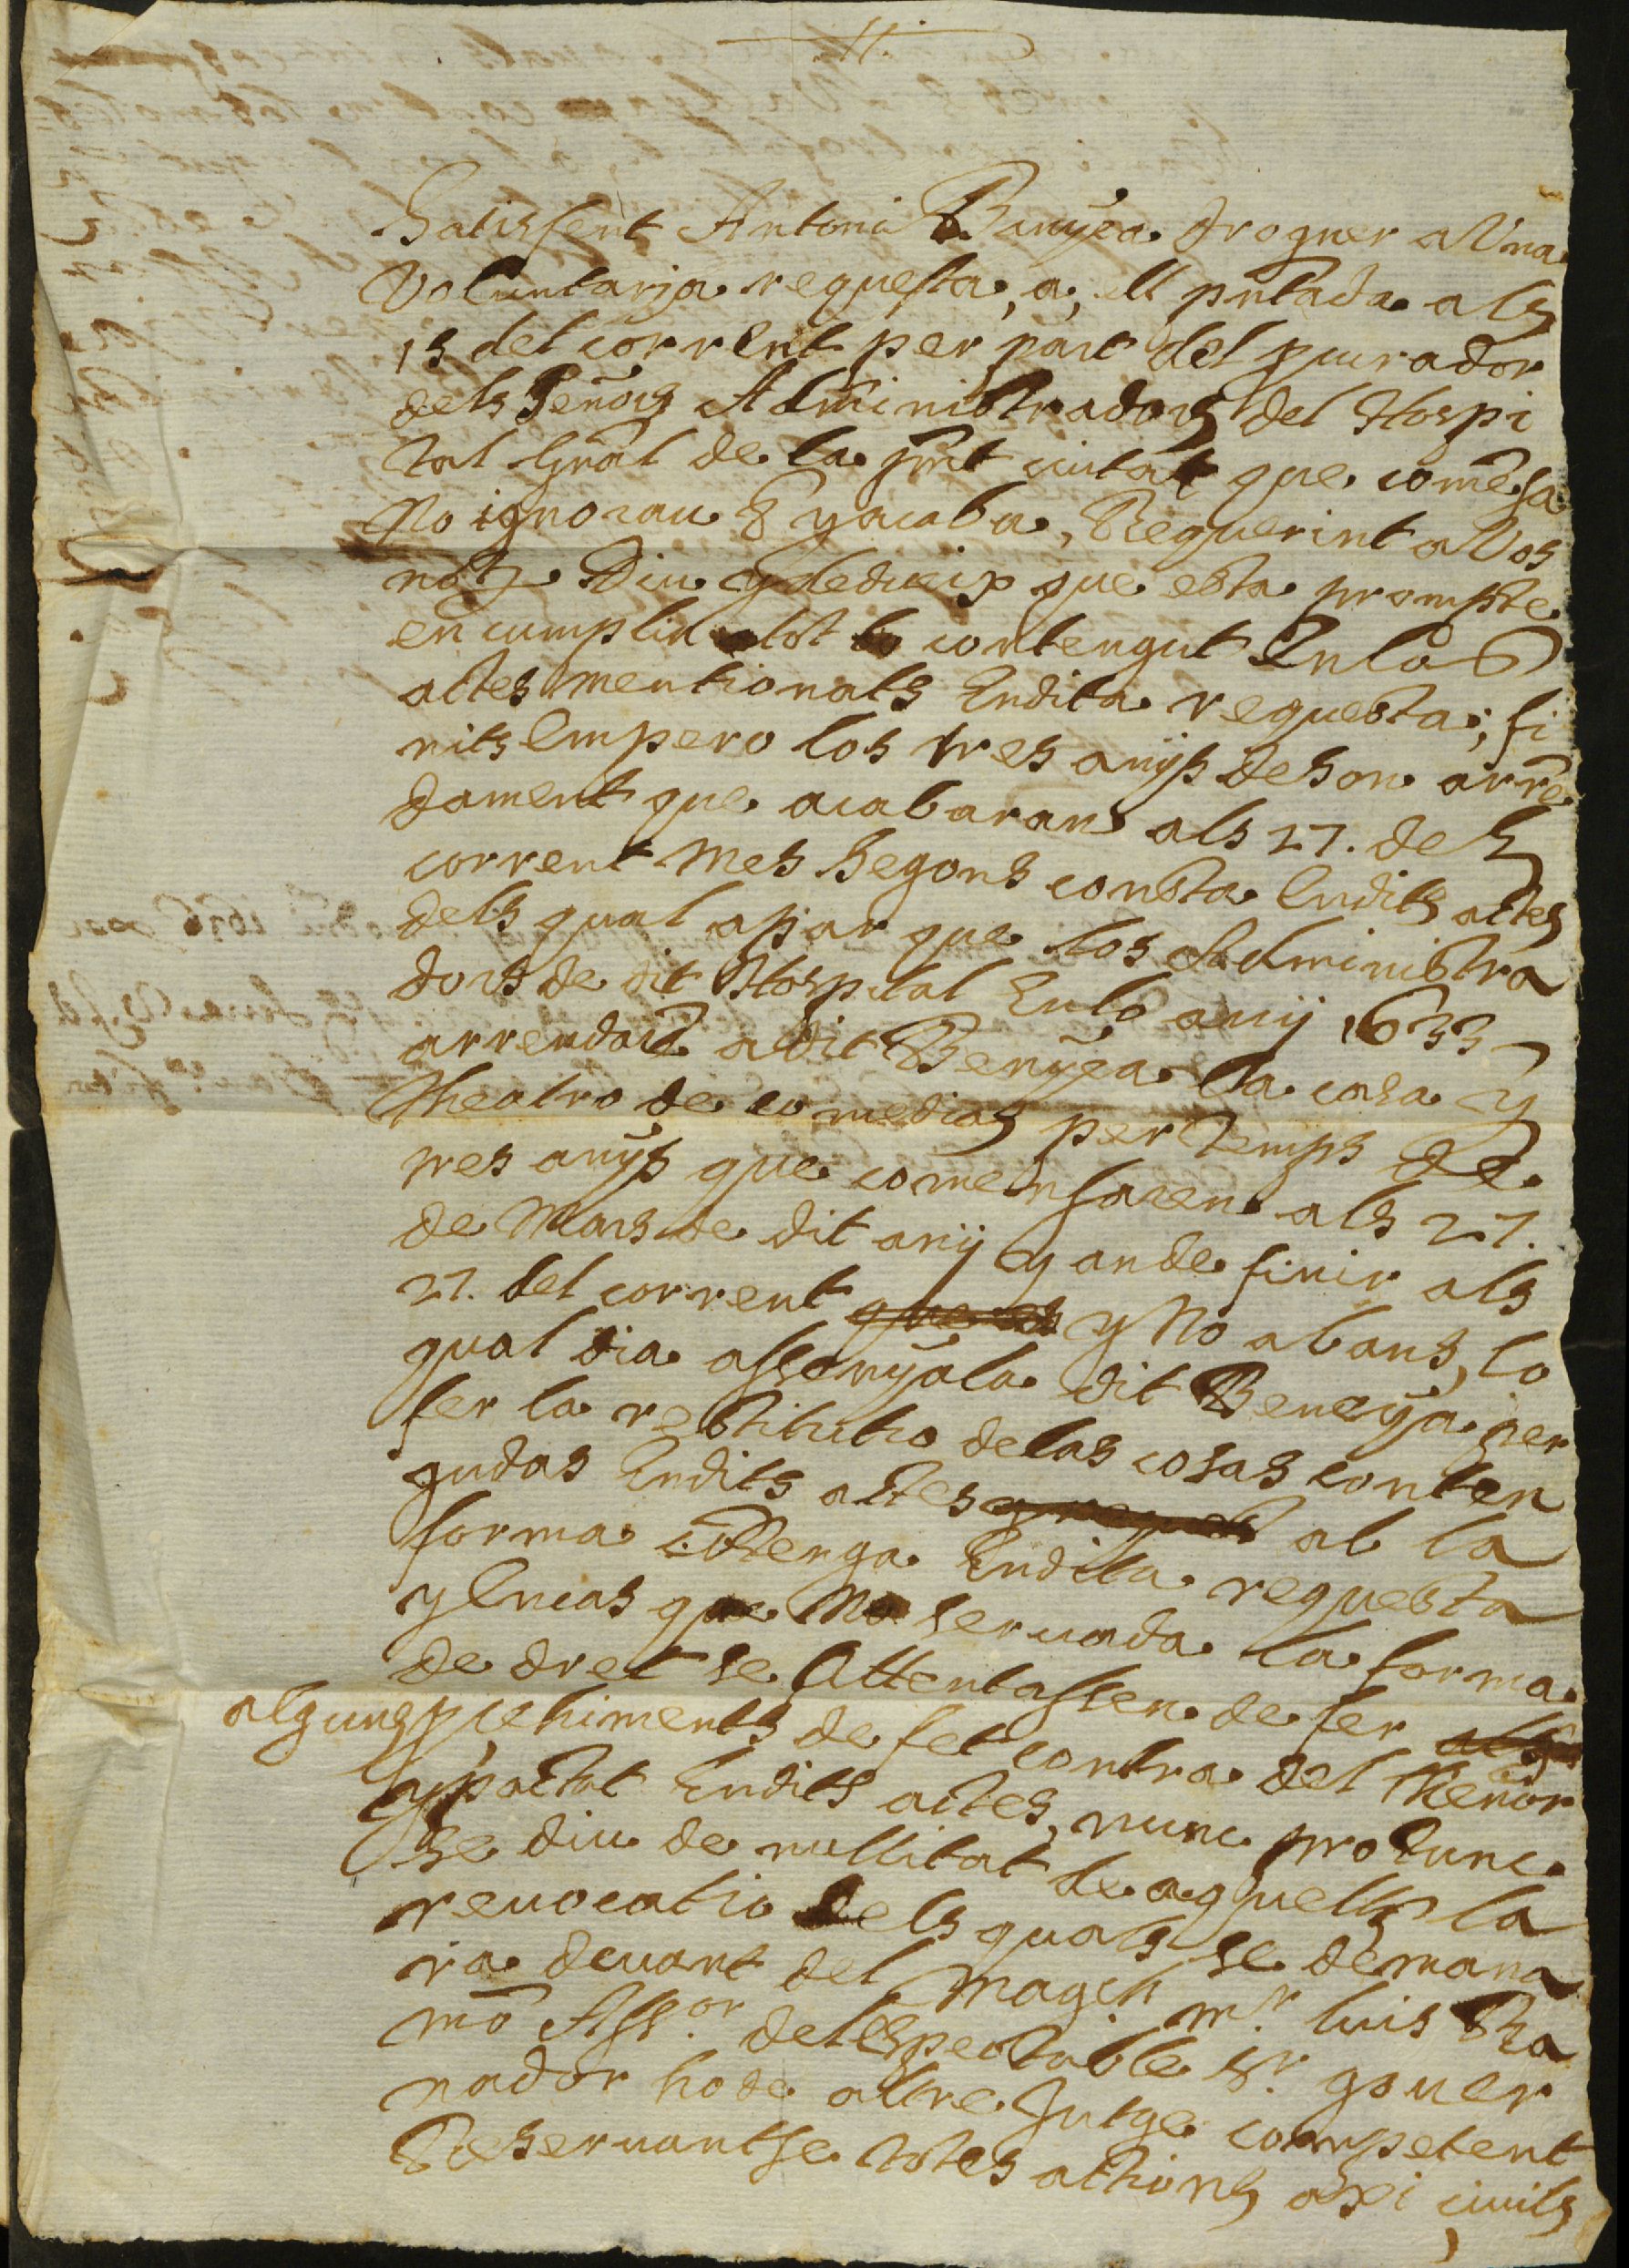 Satisfent Antoni Bunyea droguer a Una
Voluntaria requesta, a, ell pntada als
15 del corrent per part del procurador
dels Señors Administradors del Hospi
tal Gñal de la pñt ciutat que comẽsa
No ignorau E y acaba, Requerint a Vos
noty. Diu y dedueix que esta prompte
en cumplir a tot lo contengut En los
actes mentionats Endita requesta; fi
nits Empero los tres anys de son arrẽ
dament que acabaran als 27. del
corrent mes segons consta Endits actes
dels qual apar que los Administra
dors de dit Hospital En lo any 1633
arrendarẽ a dit Benyea la casa y
theatro de comedias per temps de
tres anys que comensaren als 27.
de Mars de dit any y an de finir als
27. del corrent y No abans, lo
qual dia assenyala dit Beneya per
fer la restitutio de las cosas conten
gudas Endits actes ab la
forma contenga Endita requesta
y Encas que No servada la forma
de dret se Attentassen de fer
alguns procehiments de fet contra del thenor
y pactat Endits actes, nunc pro tunc
se diu de nullitat de aquells la
revocatio dels quals se demana
ra devant del Magch. mr. Luis Ra
mõ Assor. del Espectable Sr. gover
nador ho de altre Jutge competent
Reservantse totes actions axi civils